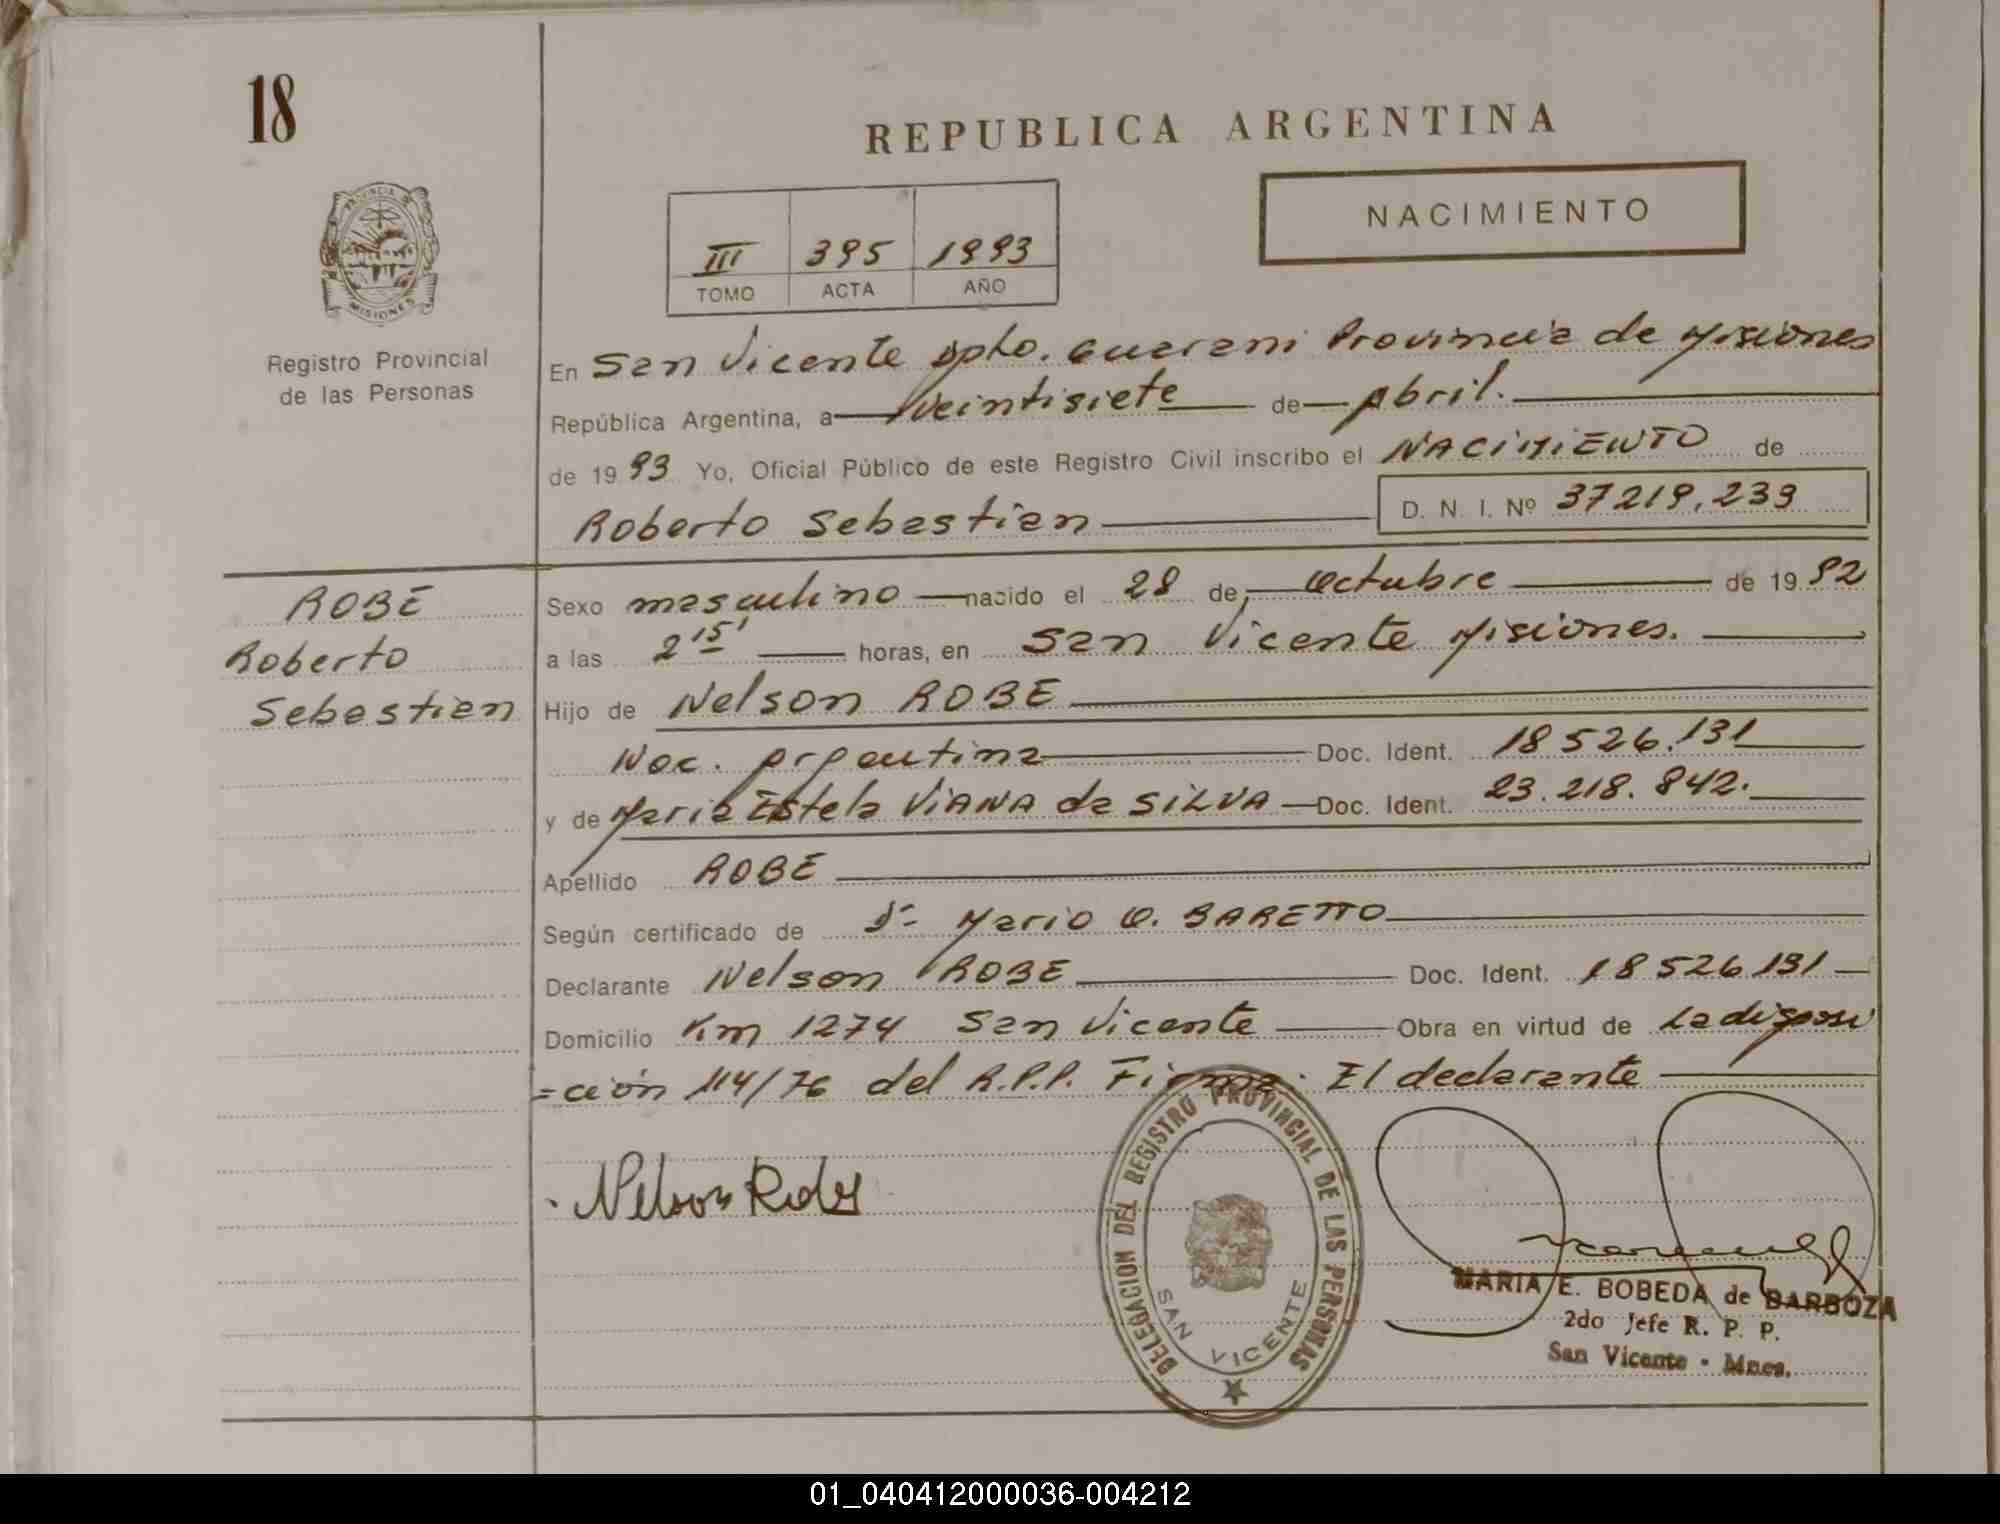 18
REPUBLICA ARGENTINA
NACIMIENTO
PROVINCIA DE
MISIONES
III 395 1993
TOMO ACTA AÑO
Registro Provincial
de las Personas
En San Vicente Dpto. Guarani Provincia de Misiones
República Argentina, a veintisiete de Abril.
de 1993 Yo, Oficial Público de este Registro Civil inscribo el NACIMIENTO de
Roberto Sebastian D. N. I. Nº 37219.239
ROBE
Roberto
Sebastian
Sexo masculino nacido el 28 de Octubre de 1992
a las 2 15' horas, en San Vicente Misiones.
Hijo de Nelson ROBE
Nac. Argentina Doc. Ident. 18526.131
y de Maria Estela VIANA da SILVA Doc. Ident. 23.218.842.
Apellido ROBE
Según certificado de Dr Mario O. BARETTO
Declarante Nelson ROBE Doc. Ident. 18526131
Domicilio Km 1274 San Vicente Obra en virtud de La disposi
=ción 114/76 del R.P.P. Firma. El declarante
Nelson
DELEGACION DEL REGISTRO PROVINCIAL DE LAS PERSONAS
SAN VICENTE
MARIA E. BOBEDA de BARBOZA
2do Jefe R. P. P.
San Vicente - Mnes.
01_040412000036-004212